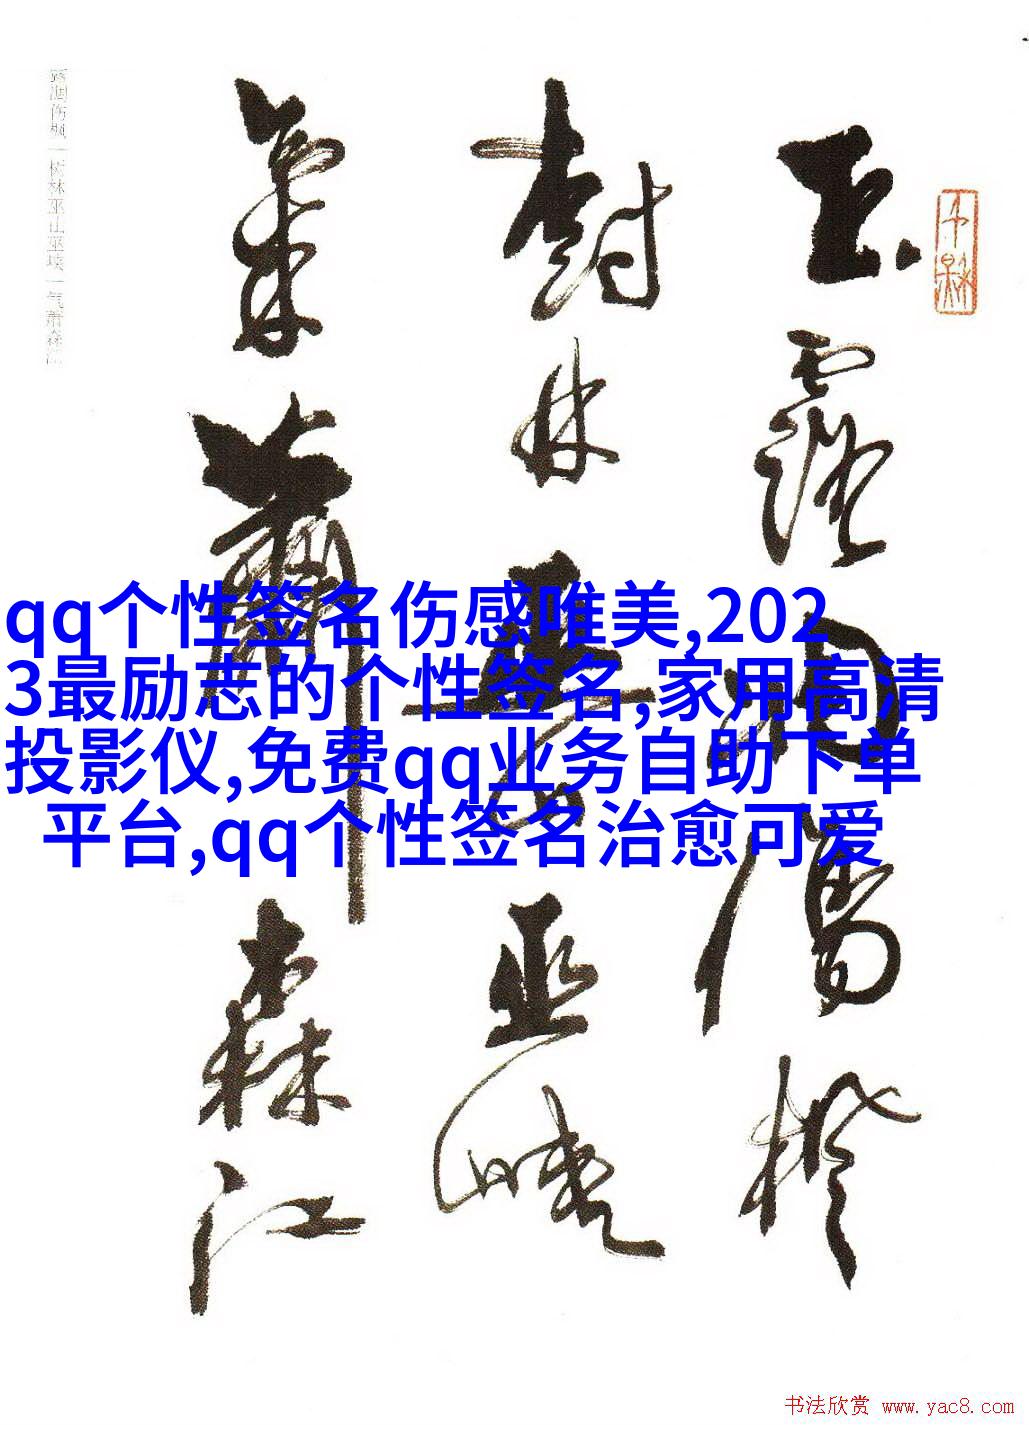 玉露凋傷楓
樹林巫山巫峽
氣蕭森江
露凋伤枫|树林巫山巫峡|气萧森江
qq个性签名伤感唯美,202
3最励志的个性签名,家用高清
投影仪,免费qq业务自助下单
平台,qq个性签名治愈可爱
书法欣赏 www.yac8.com